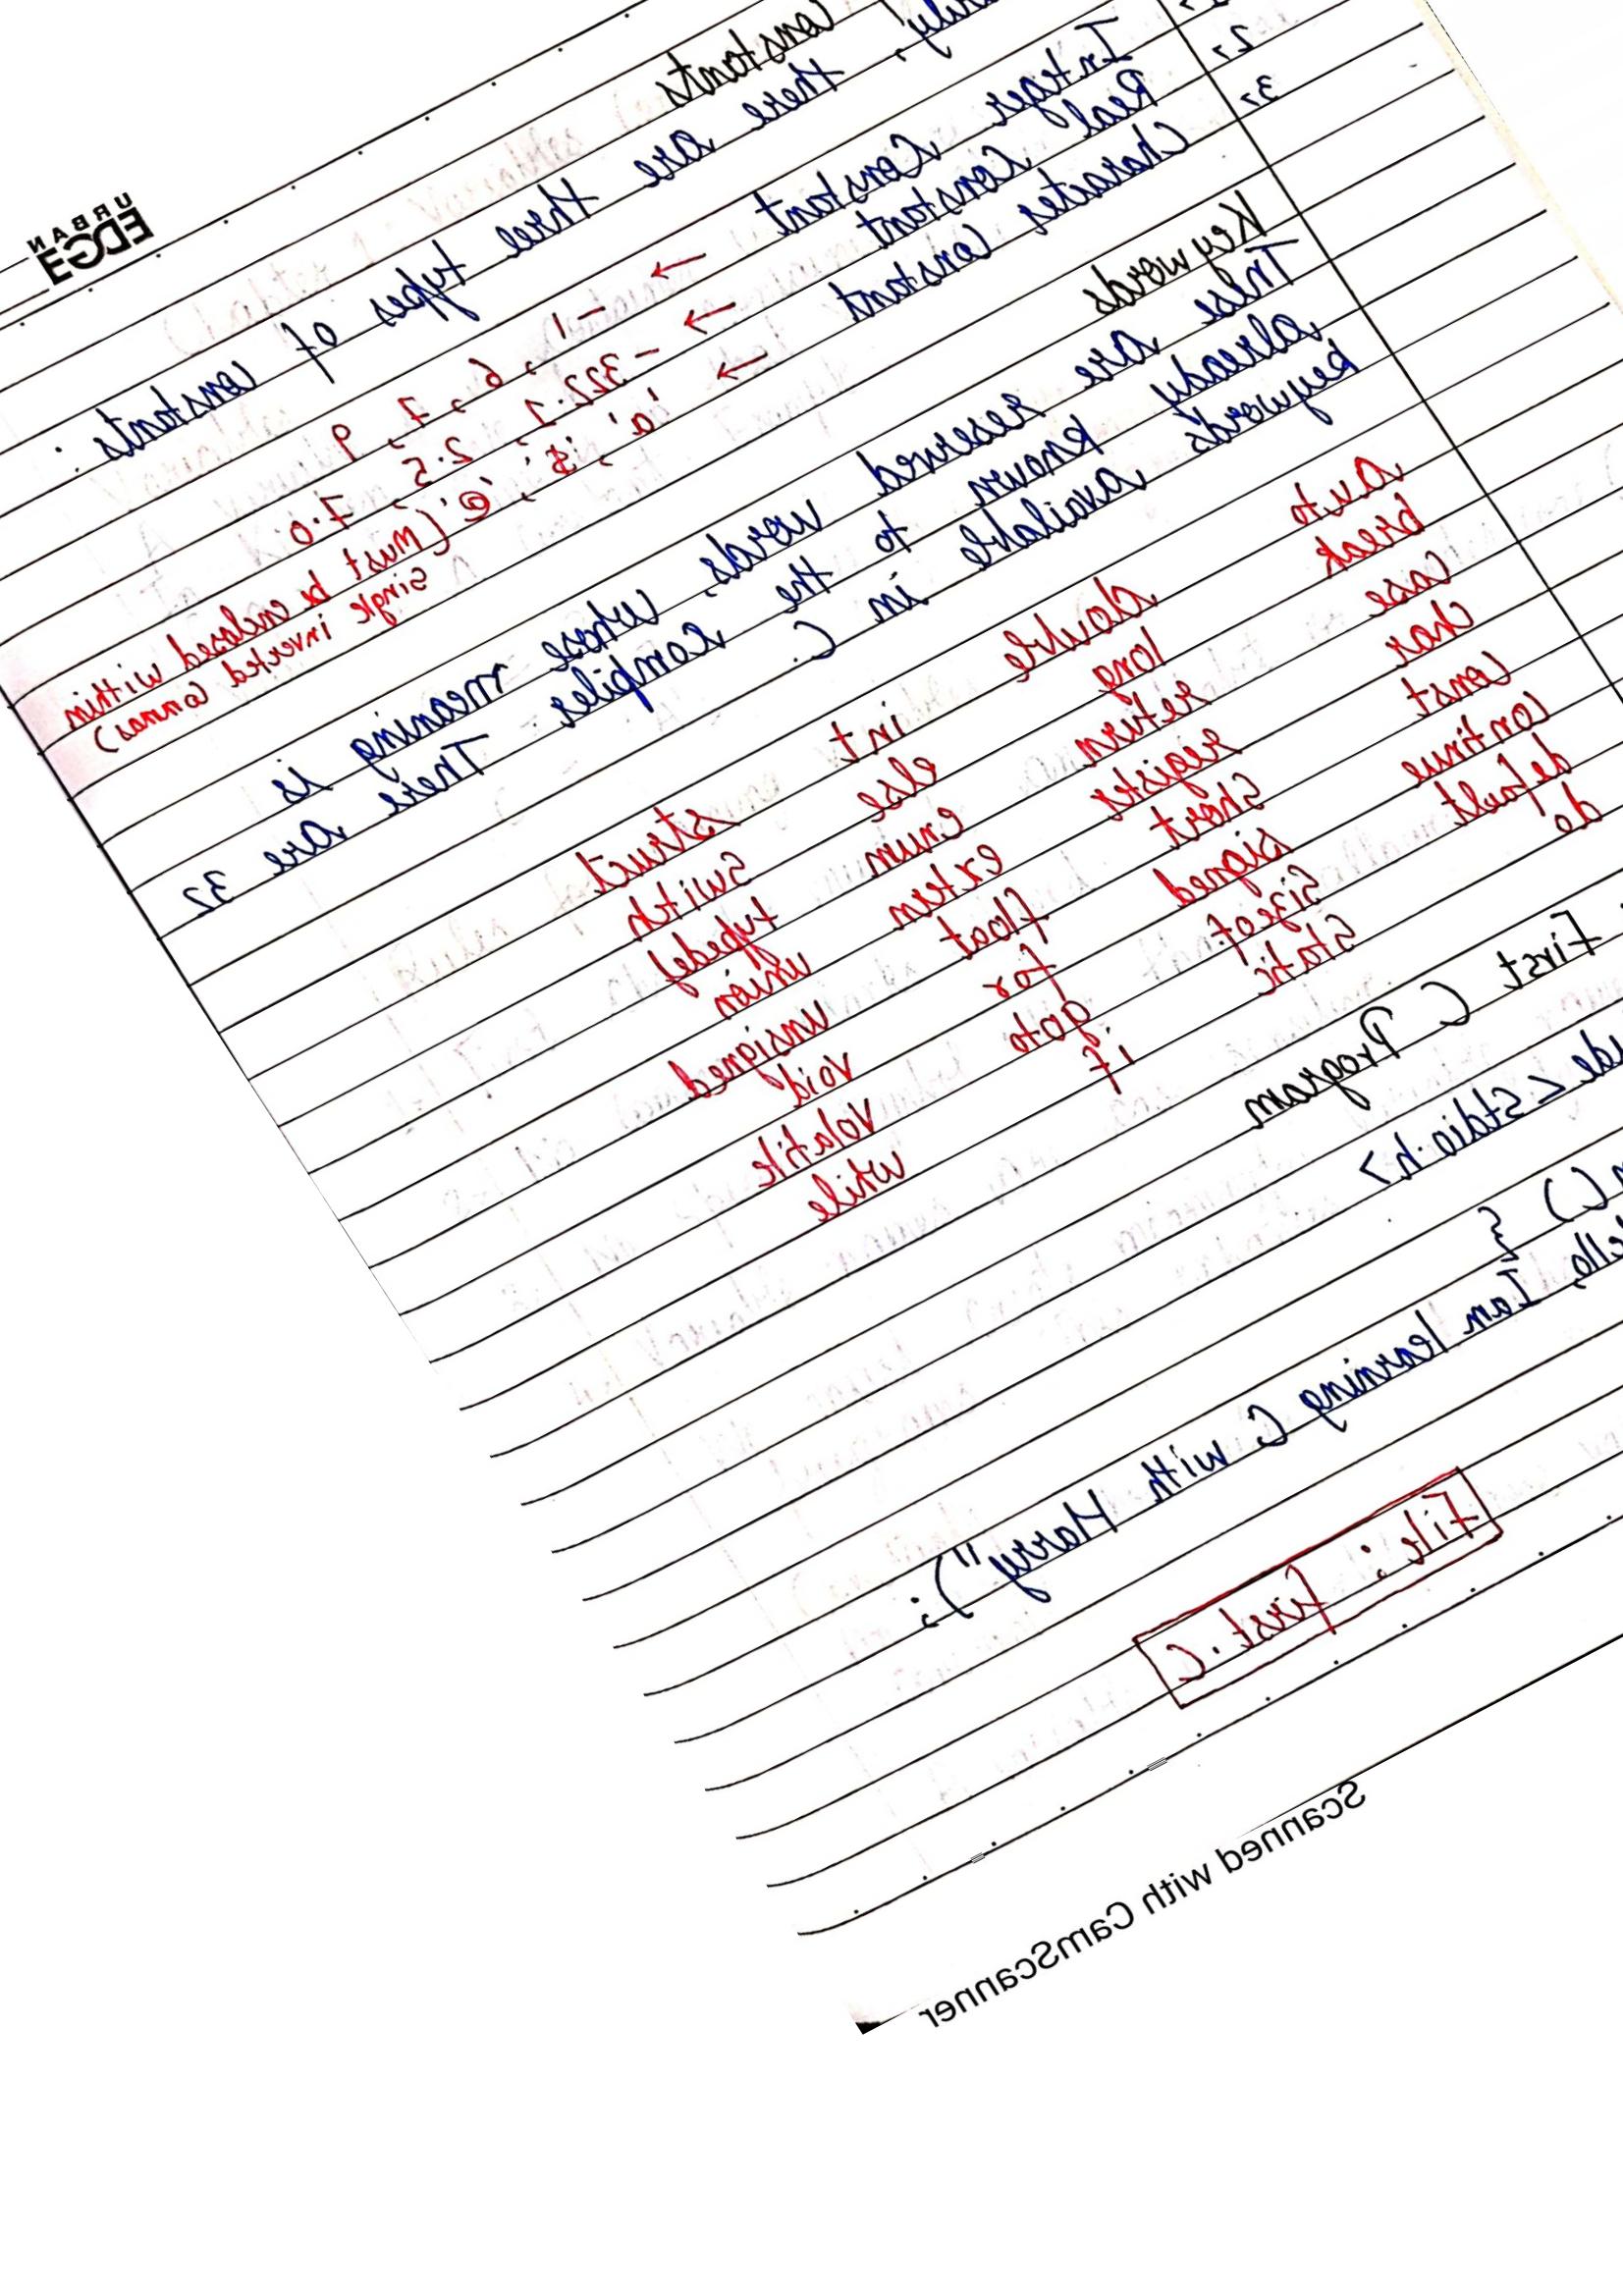 URBAN
EDGE
constants
there are three types of constants :
Integer Constant → -1, 6, 7, 9
2> Real Constant → -322.1, 2.5, 7.0
3> Character constant → 'a', '$', '@' (must be enclosed within
single inverted commas)
Keywords
These are reserved words, whose meaning is
already known to the compiler. There are 32
keywords available in C.
auto double int struct
break long else switch
case return enum typedef
char register extern union
const short float unsigned
continue signed for void
default sizeof goto volatile
do static if while
First C Program
<stdio.h>
() {
I am learning C with Harry");
File : first.c
Scanned with CamScanner